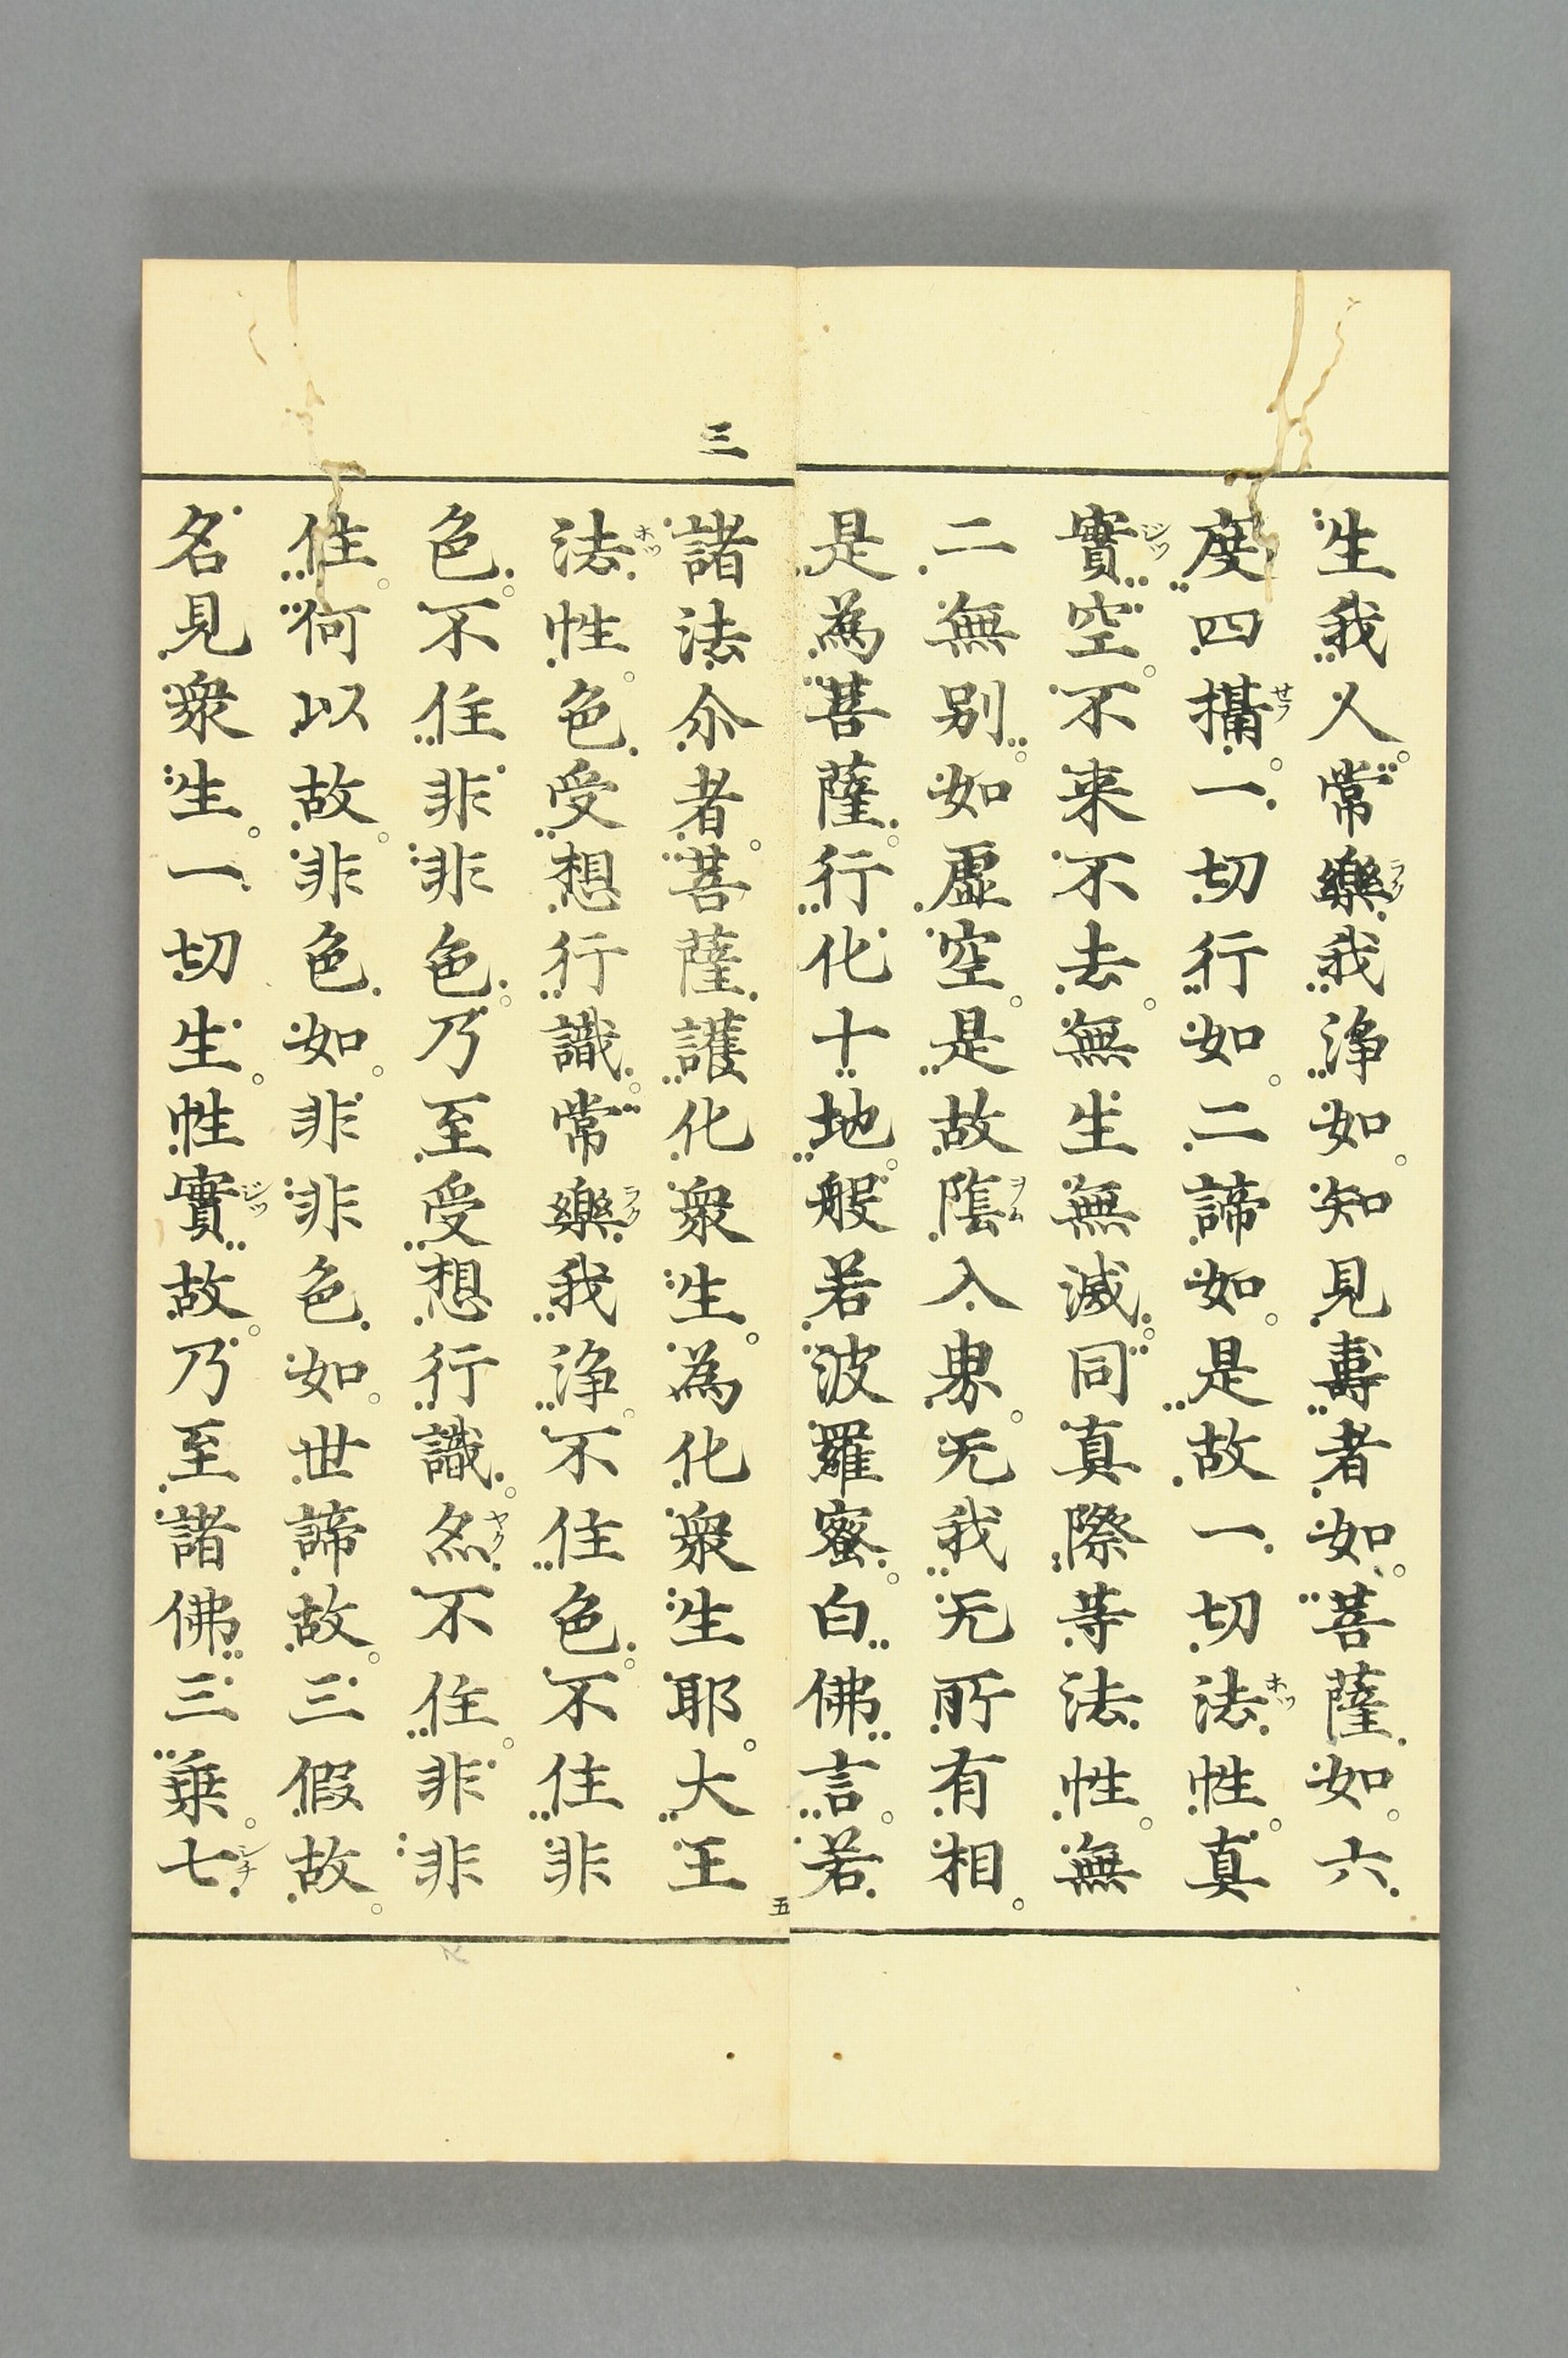 生我人常樂我淨如知見壽者如菩薩如六
度四攝一切行如二諦如是故一切法性真
實空不来不去無生無滅同真際等法性無
二無别如虛空是故陰入界无我无所有相
是為菩薩行化十地般若波羅蜜白佛言若
三
諸法尒者菩薩護化衆生為化衆生耶大王
五
法性色受想行識常樂我淨不住色不住非
色不住非非色乃至受想行識亦不住非非
住何以故非色如非非色如世諦故三假故
名見衆生一切生性實故乃至諸佛三乗七
ラク
セフ
ホツ
ジツ
ヲム
ホツ
ラク
ヤク
ジツ
シチ